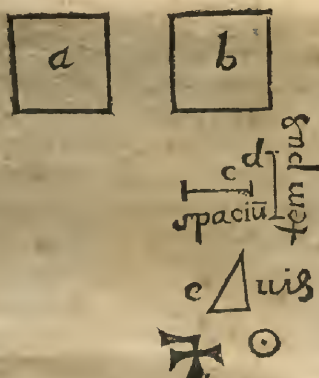 a b
d
c
spaciū
tempus
e uis